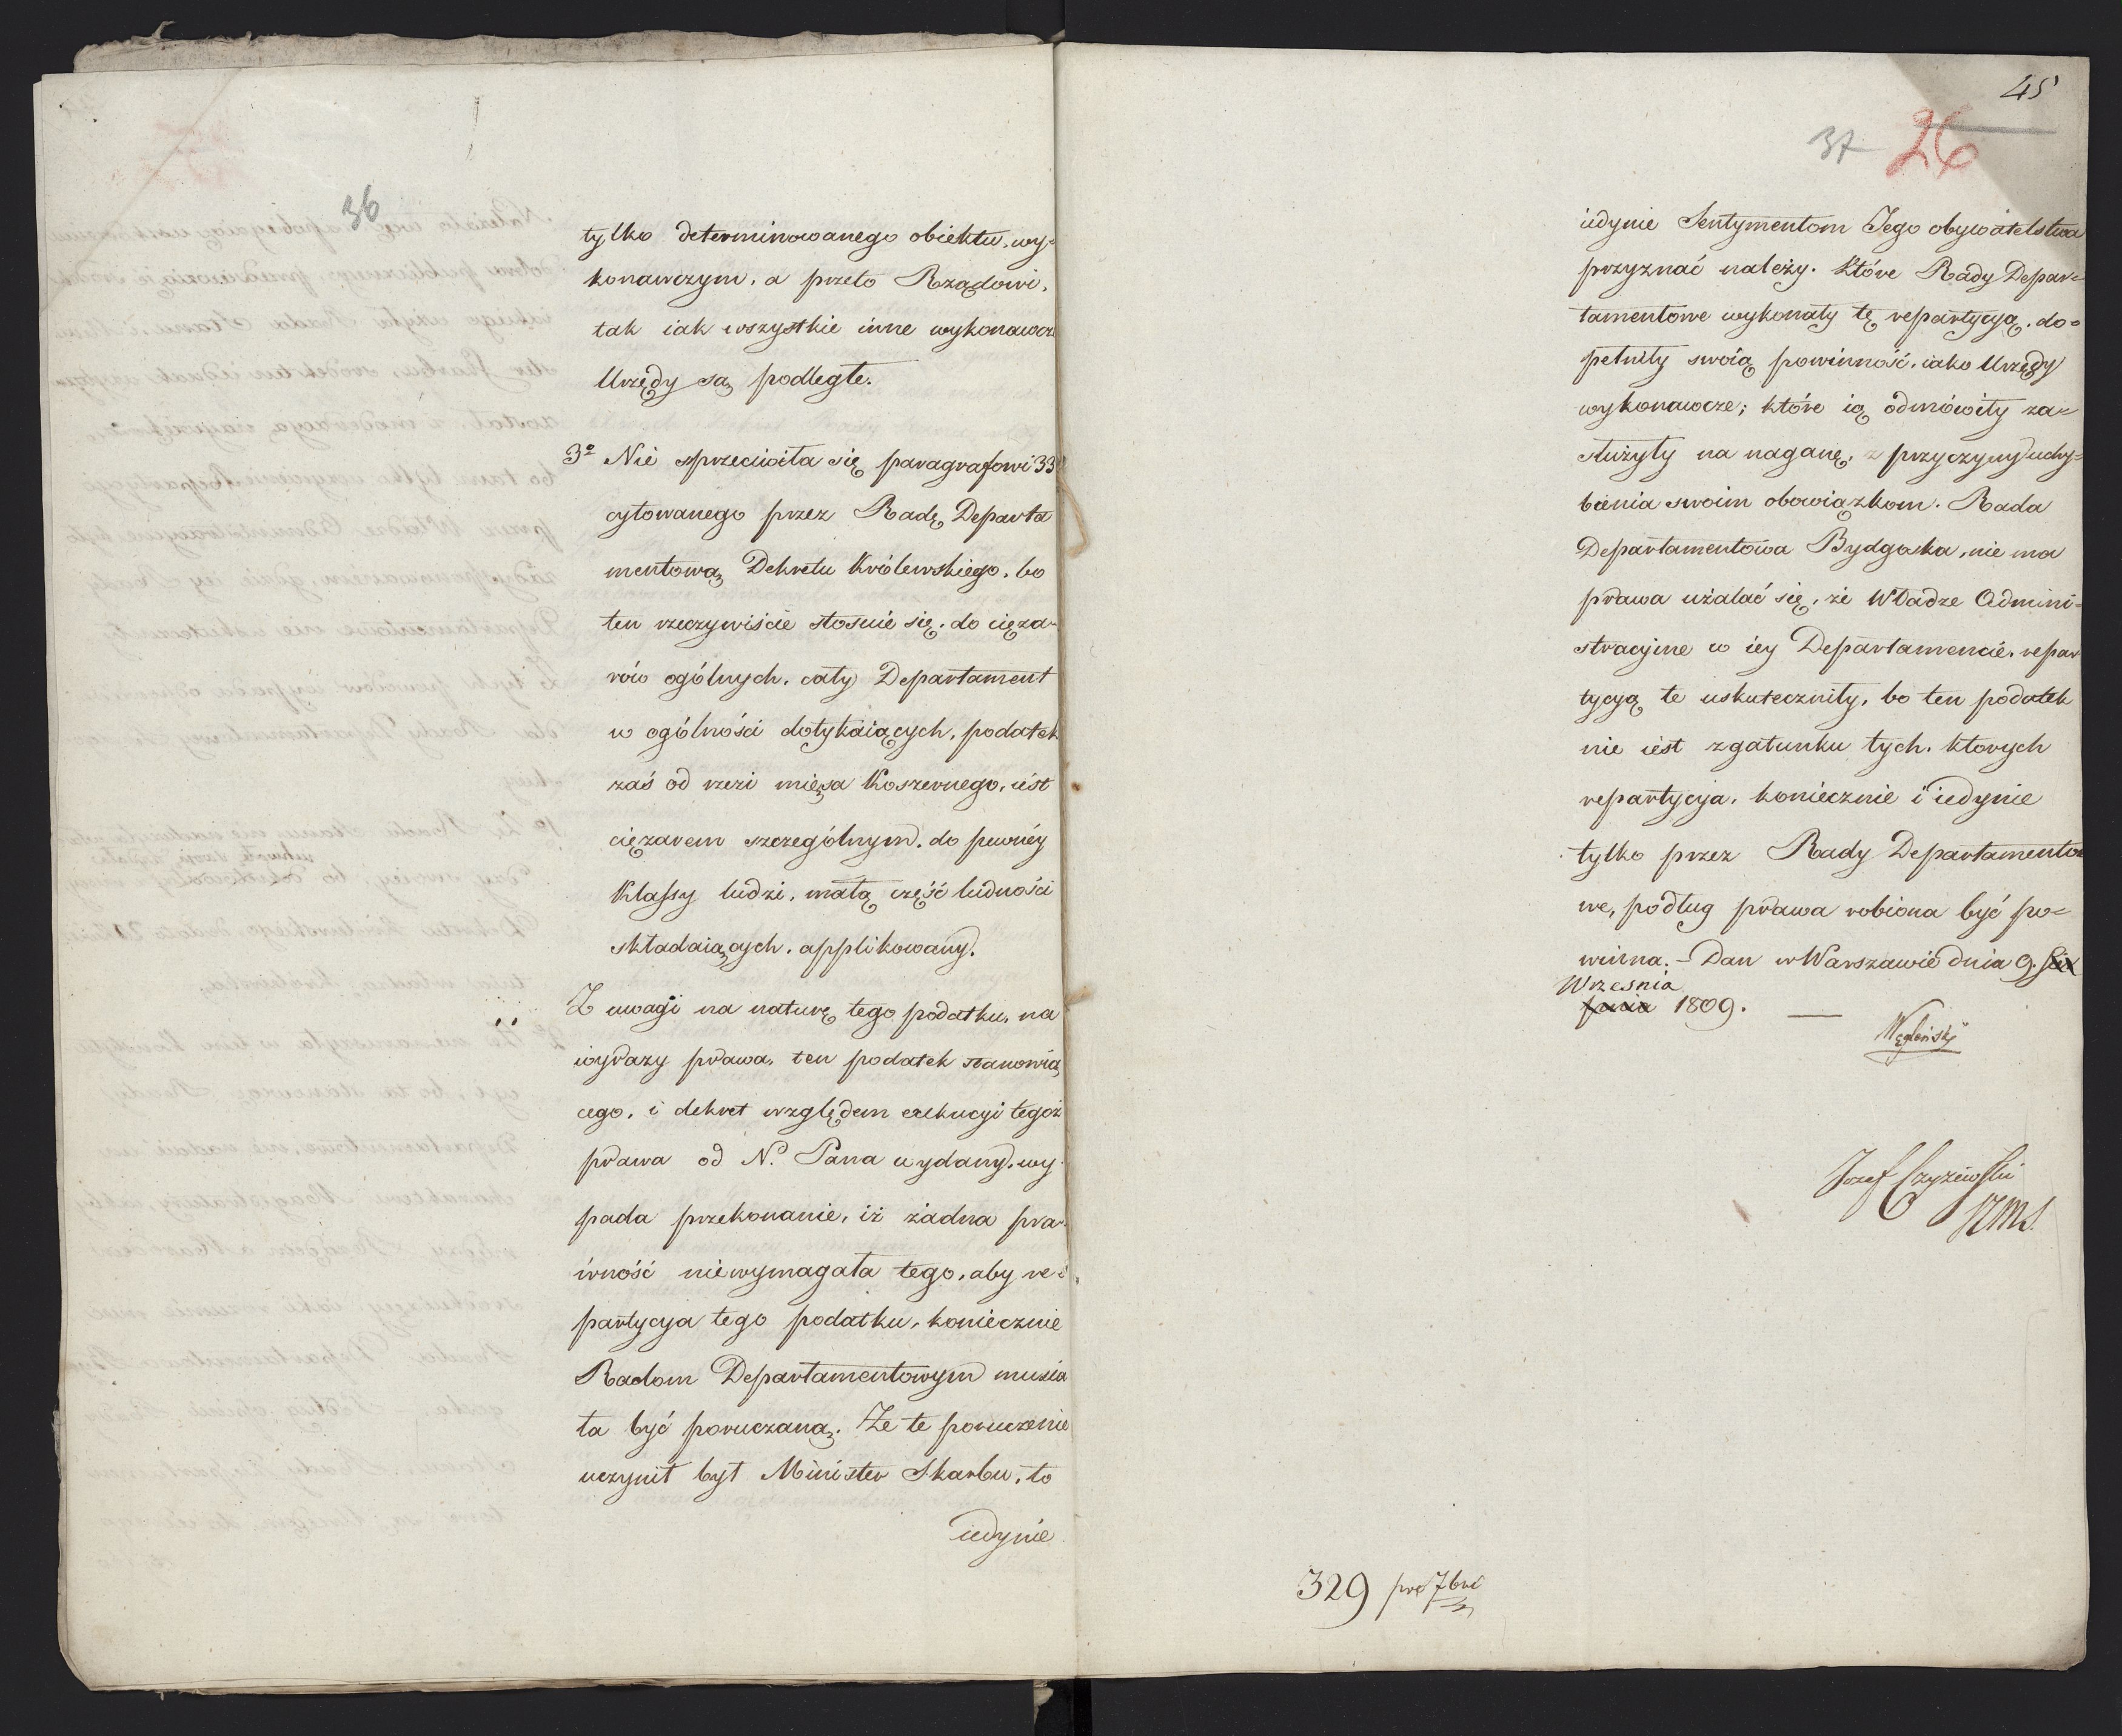 36
tylko determinowanego obiektu, wy=
konawczym, a przeto Rządowi,
tak iak wszystkie inne wykonawcze
Urzędy są podległe.
3º Nie sprzeciwiła się paragrafowi 33
cytowanego przez Radę Departa
mentową Dekretu Królewskiego, bo
ten rzeczywiście stosuie się, do cięża-
rów ogólnych, cały Departament
w ogólności dotykaiących, podatek
zaś od rzezi mięsa Koszernego, iest
ciężarem szczególnym, do pewnéy
Klassy ludzi, małą część ludności
składaiących, applikowany.
Z uwagi na naturę tego podatku, na
wyrazy prawa, ten podatek stanowią
cego, i dekret względem exekucyi tegoż
prawa od N. Pana wydany, wy
pada przekonanie, iż żadna pra-
wność niewymagała tego, aby re=
partycya tego podatku, koniecznie
Radom Departamentowym musia
ła być poruczaną. Że te poruczenie
uczynił był Minister Skarbu, to
iedynie
45
37 26
iedynie Sentymentom Jego obywatelstwa
przyznać należy. Które Rady Depar=
tamentowe wykonały tę repartycyą, do=
pełniły swoią powinność, iako Urzędy
wykonawcze; które ią odmówiły za=
służyły na naganę, z przyczyny uchy=
bienia swoim obowiązkom. Rada
Departamentowa Bydgoska, nie ma
prawa użalać się, że Władze Admini=
stracyine w iey Departamencie, repar
tycyą te uskuteczniły, bo ten podatek
nie iest zgatunku tych, ktorych
repartycya, koniecznie i iedynie
tylko przez Rady Departamento
we, podług prawa robiona być po=
winna. - Dan w Warszawie dnia 9.
Wrzesnia
1809.
Węgleński
Jozef Czyżewski
329 pro 7bri